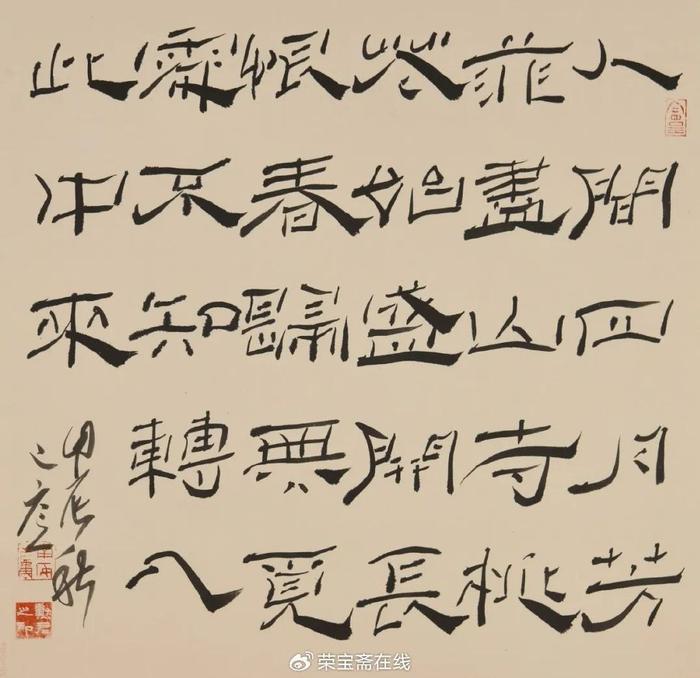 人間四月芳
菲盡山寺桃
花始盛開長
恨春歸無覓
處不知轉入
此中來
甲辰秋
荣宝斋在线